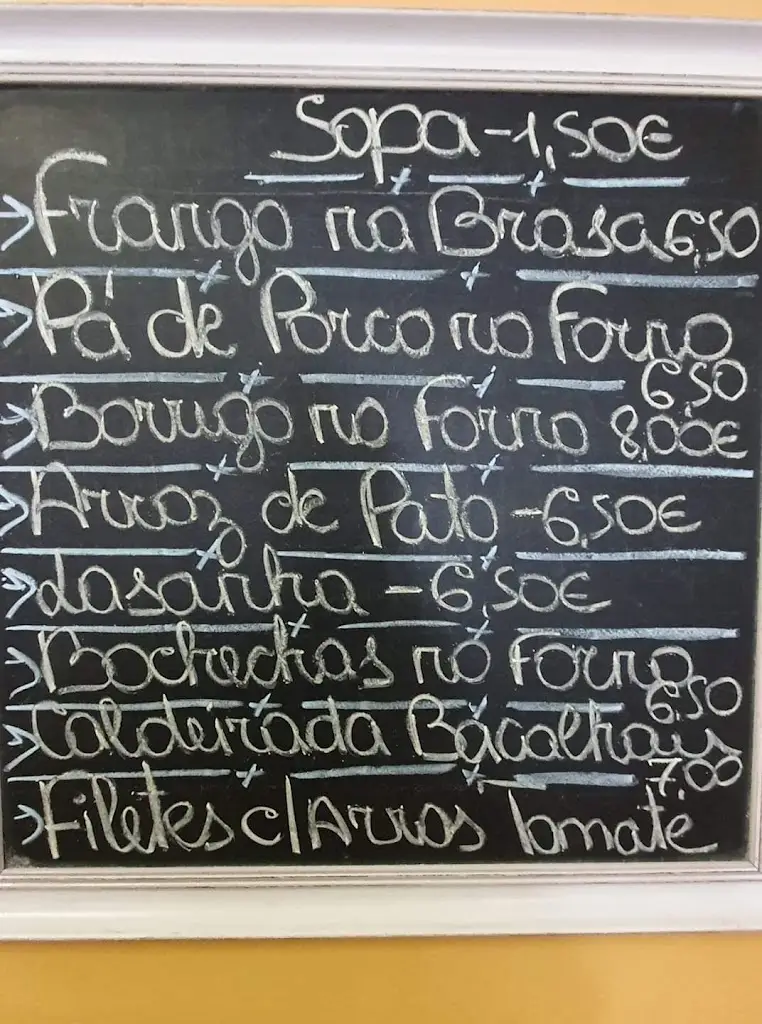 Sopa - 1,50€
Frango na Brasa 6,50
Pá de Porco no Forno
6,50
Borrego no Forno 8,00€
Arroz de Pato - 6,50€
Lasanha - 6,50€
Bochechas no Forno
6,50
Caldeirada Bacalhau
7,00
Filetes c/ Arros Tomate